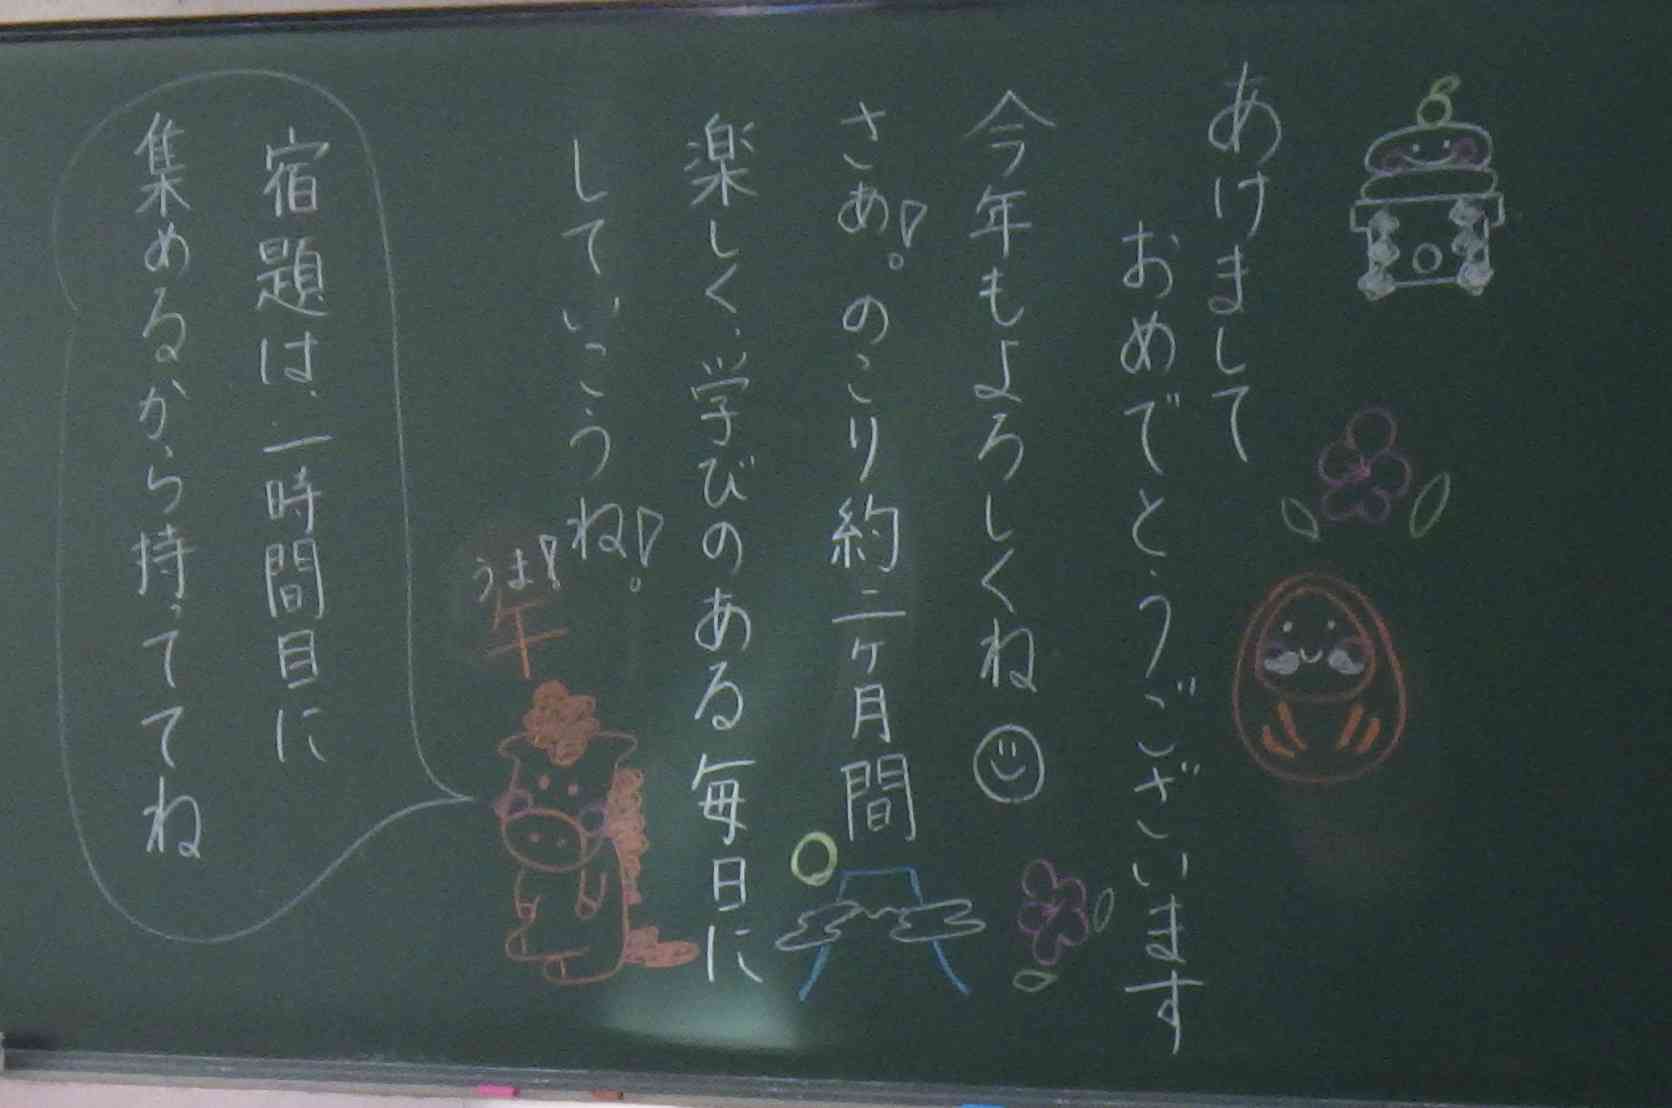 あけまして
おめでとうございます
今年もよろしくね
さあ!。のこり約二ヶ月間
楽しく、学びのある毎日に
していこうね!。
うま!
午
宿題は、一時間目に
集めるから持っててね